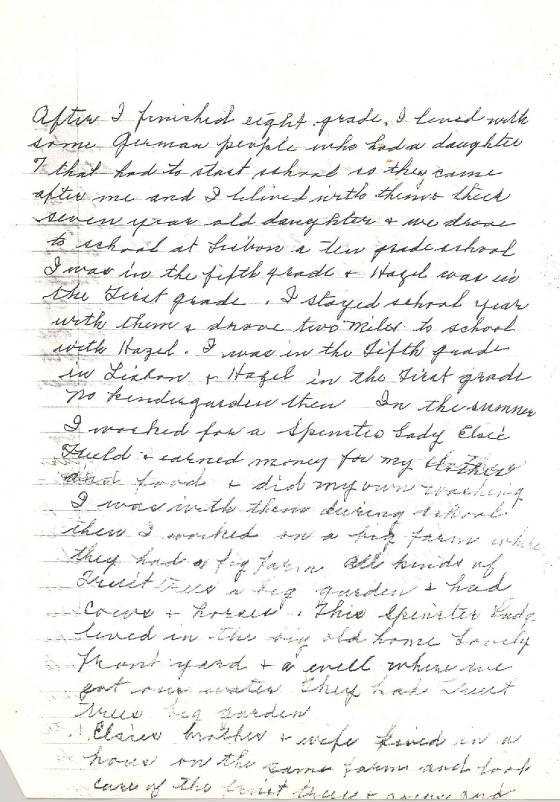 After I finished eight grade. I lived with
some German people who had a daughter
7 that had to start school so they came
after me and I lived with them & their
seven year old daughter & we drove
to school at Lisbon a ten grade school
I was in the fifth grade & Hazel was in
the First grade. I stayed school year
with them & drove two miles to school
with Hazel. I was in the Fifth grade
in Lisbon & Hazel in the First grade
No Kindergarden then In the summer
I worked for a Spinster Lady Elsie
& earned money for my clothes
and food & did my own washing
I was with them during school
then I worked on a big farm where
they had a big farm all kinds of
Fruit Trees a big garden & had
Cows & horses. This Spinster Lady
lived in the big old home Lovely
Front yard & a well where we
got our water They had Fruit
trees big garden
Elsies brother & wife lived in a
hous on the same farm and took
care of the fruit trees & and